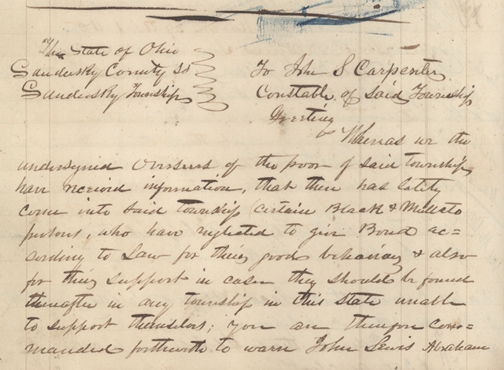 The State of Ohio
Sandusky County SS
Sandusky Township
To John S Carpenter
Constable of Said Township
Greeting
Whereas we the
undersigned Overseers of the poor of said township
have received information, that there has lately
come into Said township certain Black & Mullato
persons, who have neglected to give Bond ac-
cording to Law for their good behaviour & also
for their support in case they should be found
thereafter in any township in this State unable
to support themselves; you are therefore com-
manded forthwith to warn John Lewis Abraham